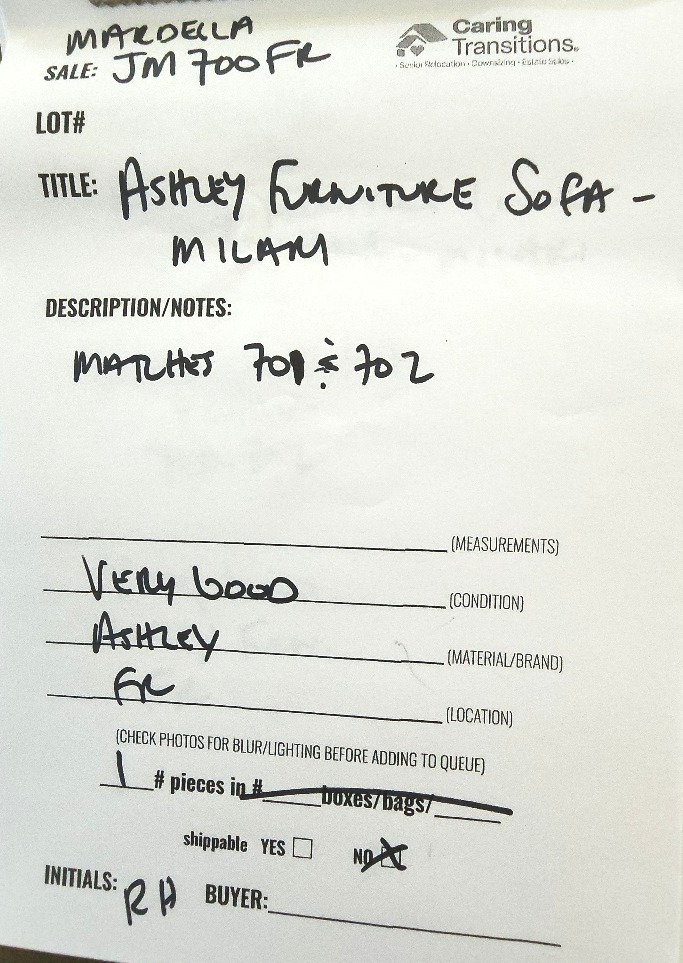 MARDELLA
SALE: JM 700FR
Caring
Transitions®
• Senior Relocation • Downsizing • Estate Sales •
LOT#
TITLE: ASHLEY FURNITURE SOFA -
MILAM
DESCRIPTION/NOTES:
MATCHES 701 & 702
(MEASUREMENTS)
VERY GOOD (CONDITION)
ASHLEY (MATERIAL/BRAND)
FR (LOCATION)
(CHECK PHOTOS FOR BLUR/LIGHTING BEFORE ADDING TO QUEUE)
1 # pieces in # boxes/bags/
shippable YES NO X
INITIALS: RH BUYER: